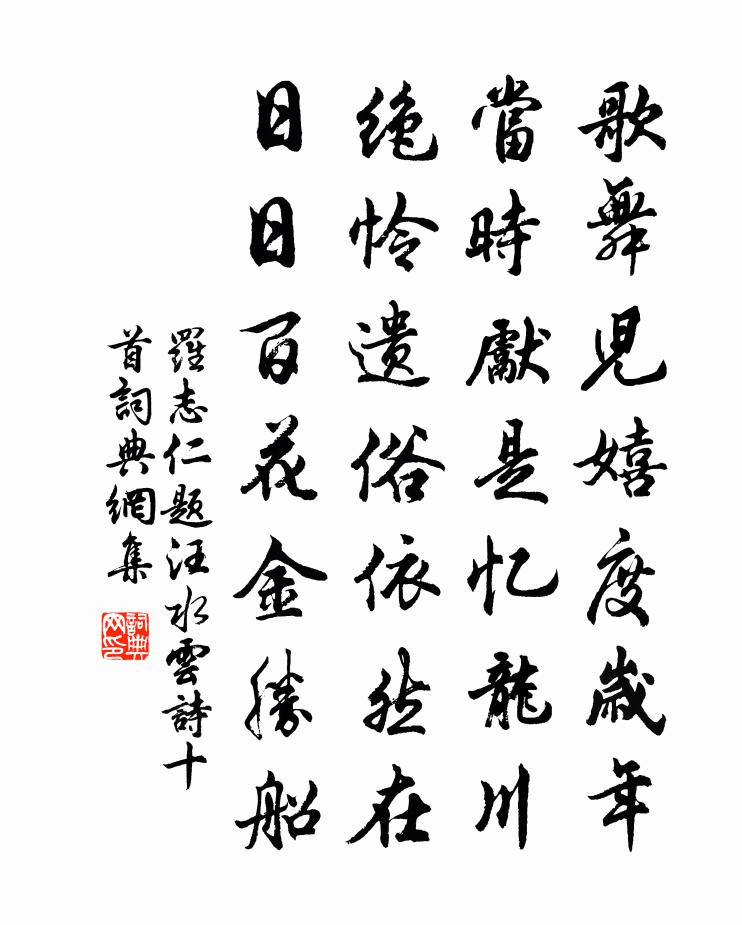 歌舞児嬉度歳年
當時獻是忆龍川
绝怜遗俗依然在
日日百花金勝船
羅志仁题汪水雲詩十
首詞典網集
詞典
网印